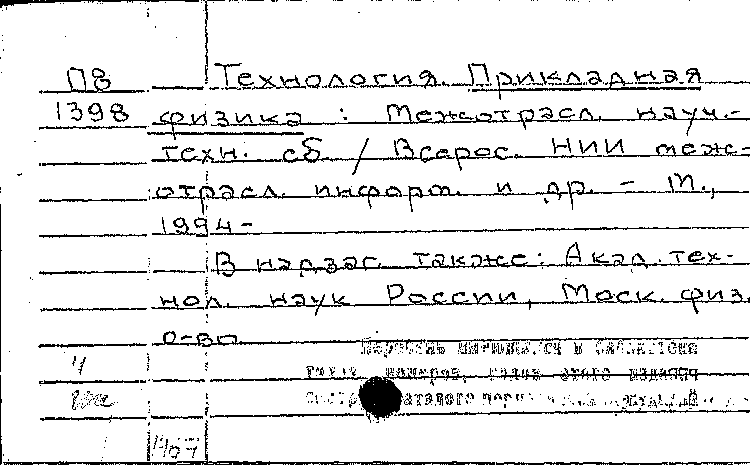 П8 Технология. Прикладная
1398 физика : Межотрасл. науч.-
техн. сб. / Всерос. НИИ меж-
отрасл. информ. и др. - М.,
1994-
В надзаг. также: Акад. тех-
нол. наук России, Моск. физ.
о-во
Перечень имеющихся в библиотеке
номеров, этого издания
каталоге
1407